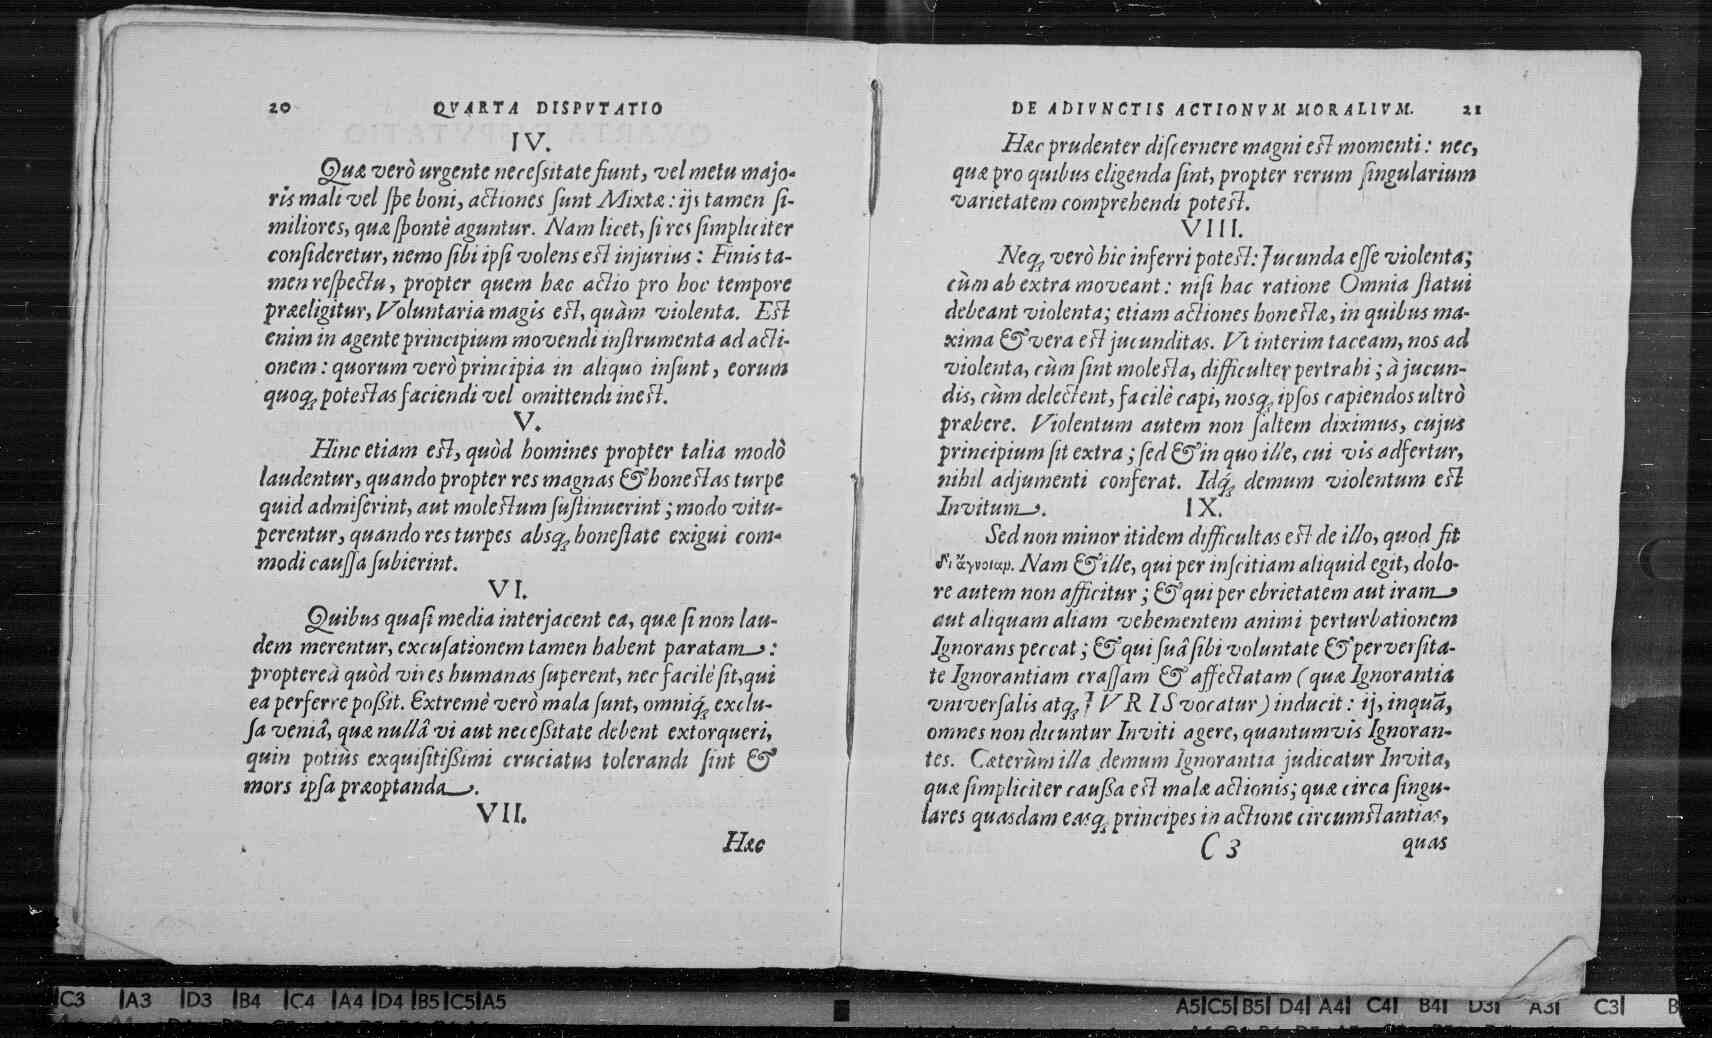 20 QVARTA DISPVTATIO
IV.
Quæ verò urgente neceſsitate fiunt, vel metu majo-
ris mali vel ſpe boni, actiones ſunt Mixtæ: ijs tamen ſi-
miliores, quæ ſpontè aguntur. Nam licet, ſi res ſimpliciter
conſideretur, nemo ſibi ipſi volens est injurius: Finis ta-
men reſpectu, propter quem hæc actio pro hoc tempore
præeligitur, Voluntaria magis est, quàm violenta. Est
enim in agente principium movendi inſtrumenta ad acti-
onem: quorum verò principia in aliquo inſunt, eorum
quoq; potestas faciendi vel omittendi inest.
V.
Hinc etiam est, quòd homines propter talia modò
laudentur, quando propter res magnas & honestas turpe
quid admiſerint, aut molestum ſuſtinuerint; modo vitu-
perentur, quando res turpes absq; honeſtate exigui com-
modi cauſſa ſubierint.
VI.
Quibus quaſi media interjacent ea, quæ ſi non lau-
dem merentur, excuſationem tamen habent paratam:
propterea quòd vires humanas ſuperent, nec facilè ſit, qui
ea perferre poßit. Extremè verò mala ſunt, omniq́; exclu-
ſa veniâ, quæ nullâ vi aut neceſsitate debent extorqueri,
quin potiùs exquiſitißimi cruciatus tolerandi ſint &
mors ipſa præoptanda.
VII.
Hæc
DE ADIVNCTIS ACTIONVM MORALIVM. 21
Hæc prudenter diſcernere magni est momenti: nec,
quæ pro quibus eligenda ſint, propter rerum ſingularium
varietatem comprehendi potest.
VIII.
Neq; verò hic inferri potest: Jucunda eſſe violenta;
cùm ab extra moveant: niſi hac ratione Omnia ſtatui
debeant violenta; etiam actiones honestæ, in quibus ma-
xima & vera est jucunditas. Vt interim taceam, nos ad
violenta, cùm ſint molesta, difficulter pertrahi; à jucun-
dis, cùm delectent, facilè capi, nosq; ipſos capiendos ultrò
præbere. Violentum autem non ſaltem diximus, cujus
principium ſit extra; ſed & in quo ille, cui vis adfertur,
nihil adjumenti conferat. Idq́; demum violentum est
Invitum.
IX.
Sed non minor itidem difficultas est de illo, quod fit
δι ἄγνοιαν. Nam & ille, qui per inſcitiam aliquid egit, dolo-
re autem non afficitur; & qui per ebrietatem aut iram
aut aliquam aliam vehementem animi perturbationem
Ignorans peccat; & qui ſuâ ſibi voluntate & perverſita-
te Ignorantiam craſſam & affectatam (quæ Ignorantia
vniverſalis atq; JVRIS vocatur) inducit: ij, inquā,
omnes non dicuntur Inviti agere, quantumvis Ignoran-
tes. Cæterùm illa demum Ignorantia judicatur Invita,
quæ ſimpliciter cauſsa est malæ actionis; quæ circa ſingu-
lares quasdam easq; principes in actione circumstantias,
C 3 quas
C3 A3 D3 B4 C4 A4 D4 B5 C5 A5
A5 C5 B5 D4 A4 C4 B4 D3 A3 C3 B